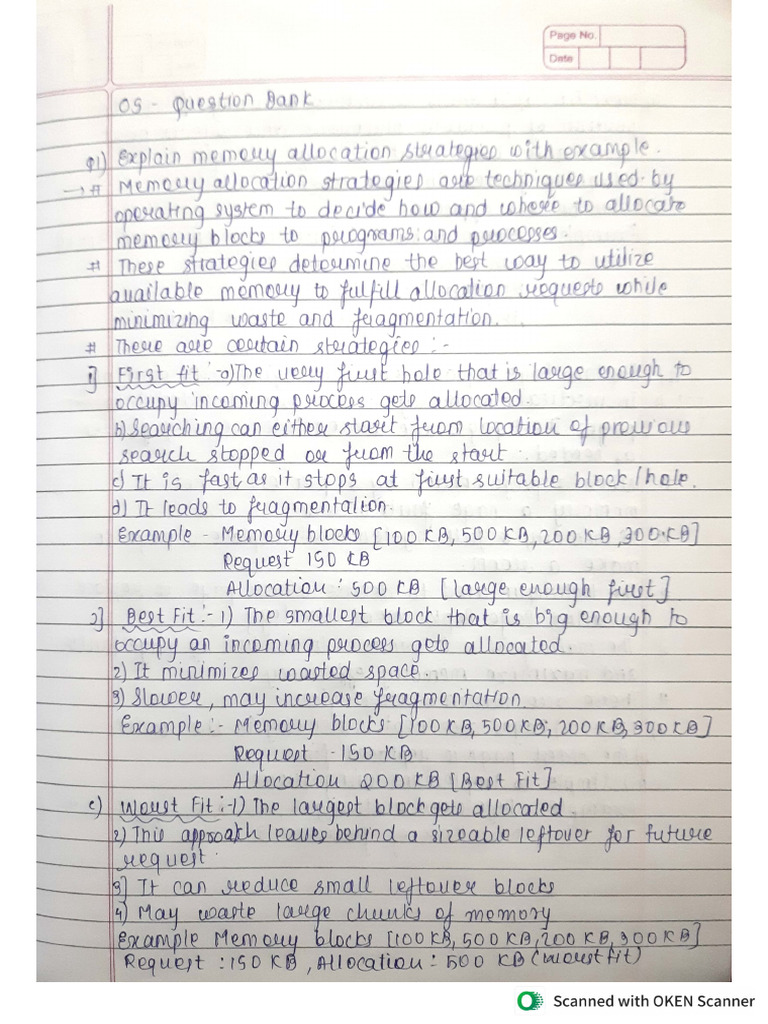 Page No.
Date
OS - Question Bank
Q1) Explain memory allocation strategies with example.
→ # Memory allocation strategies are techniques used by
operating system to decide how and where to allocate
memory blocks to programs and processes.
# These strategies determine the best way to utilize
available memory to fulfill allocation requests while
minimizing waste and fragmentation.
# There are certain strategies :-
1] First fit :- a) The very first hole that is large enough to
occupy incoming process gets allocated.
b) Searching can either start from location of previous
search stopped or from the start.
c) It is fast as it stops at first suitable block/hole.
d) It leads to fragmentation.
Example - Memory blocks [100 KB, 500 KB, 200 KB, 300 KB]
Request 150 KB
Allocation : 500 KB [large enough first]
2] Best Fit :- 1) The smallest block that is big enough to
occupy an incoming process gets allocated.
2) It minimizes wasted space.
3) Slower, may increase fragmentation.
Example :- Memory blocks [100 KB, 500 KB, 200 KB, 300 KB]
Request - 150 KB
Allocation 200 KB [Best Fit]
c) Worst Fit :- 1) The largest block gets allocated.
2) This approach leaves behind a sizeable leftover for future
request.
3] It can reduce small leftover blocks
4) May waste large chunks of memory
Example Memory blocks [100 KB, 500 KB, 200 KB, 300 KB]
Request : 150 KB, Allocation : 500 KB (worst fit)
Scanned with OKEN Scanner